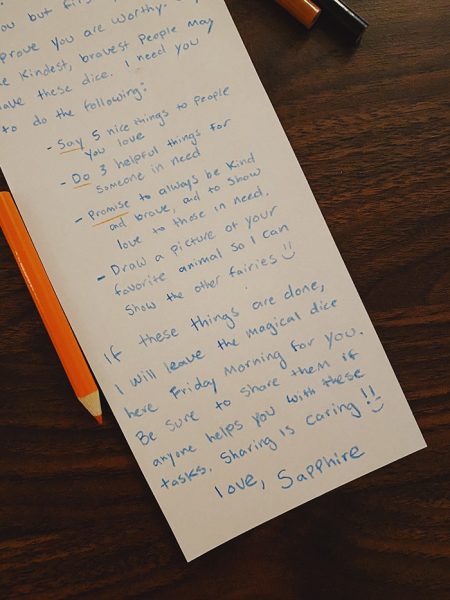 ou but first
prove you are worthy.
kindest, bravest people may
have these dice. I need you
to do the following:
- Say 5 nice things to people
you love
- Do 3 helpful things for
someone in need
- Promise to always be kind
and brave, and to show
love to those in need.
- Draw a picture of your
favorite animal so I can
show the other fairies
If these things are done,
I will leave the magical dice
here Friday morning for you.
Be sure to share them if
anyone helps you with these
tasks. Sharing is caring!!
love, Sapphire